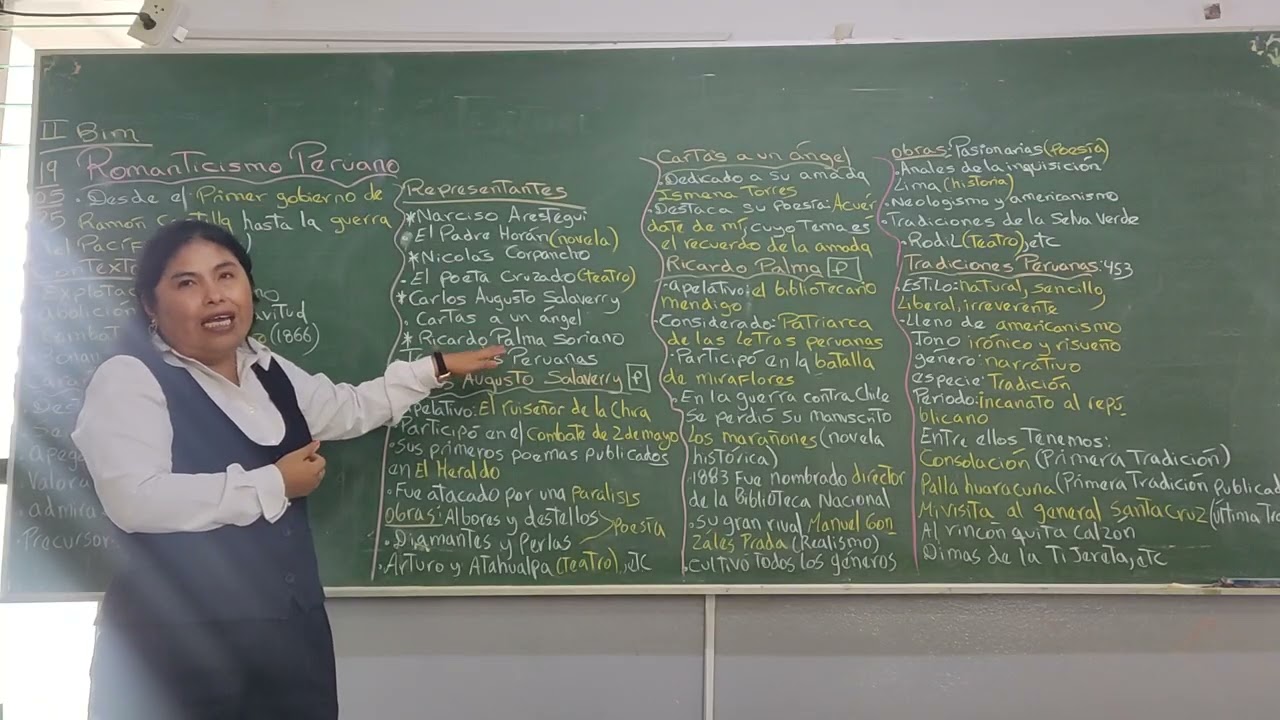 II Bim
19 Romanticismo Peruano
05 . Desde el Primer gobierno de
25 Ramón Castilla hasta la guerra
del Pacíf
Contexto
Explotac
abolición avitud
Combat o (1866)
Bonan
Cara
. Des
. Se
. apeg
. Valora
. admira
. Precursor
Representantes
*Narciso Aréstegui
. El Padre Horán (novela)
*Nicolás Corpancho
. El poeta Cruzado (teatro)
*Carlos Augusto Salaverry
. Cartas a un ángel
* Ricardo Palma Soriano
s Peruanas
Augusto Salaverry P
apelativo: El ruiseñor de la Chira
Participó en el Combate de 2 de mayo
. Sus primeros poemas publicados
en El Heraldo
. Fue atacado por una paralisis
obras: Albores y destellos
. Diamantes y Perlas > Poesía
. Arturo y Atahualpa (teatro), etc
Cartas a un ángel
. Dedicado a su amada
Ismena Torres
. Destaca su poesía: Acuér
date de mí, cuyo tema es
el recuerdo de la amada
Ricardo Palma P
. apelativo: el bibliotecario
mendigo
. Considerado: Patriarca
de las letras peruanas
. Participó en la batalla
de miraflores
. En la guerra contra Chile
se perdió su manuscrito
los marañones (novela
histórica)
. 1883 Fue nombrado director
de la Biblioteca Nacional
. su gran rival Manuel Gon
záles Prada (Realismo)
. cultivo todos los géneros
obras: Pasionarias (Poesía)
. Anales de la inquisición
Lima (historia)
. Neologismo y americanismo
. Tradiciones de la Selva Verde
. Rodil (Teatro), etc
Tradiciones Peruanas: 453
Estilo: natural, sencillo
liberal, irreverente
. Lleno de americanismo
. Tono irónico y risueño
género: narrativo
especie: Tradición
Periodo: incanato al repú
blicano
Entre ellos tenemos:
Consolación (Primera Tradición)
Palla huarcuna (Primera Tradición publicad
Mi visita al general Santa Cruz (última Tra
Al rincón quita calzón
Dimas de la Tijereta, etc